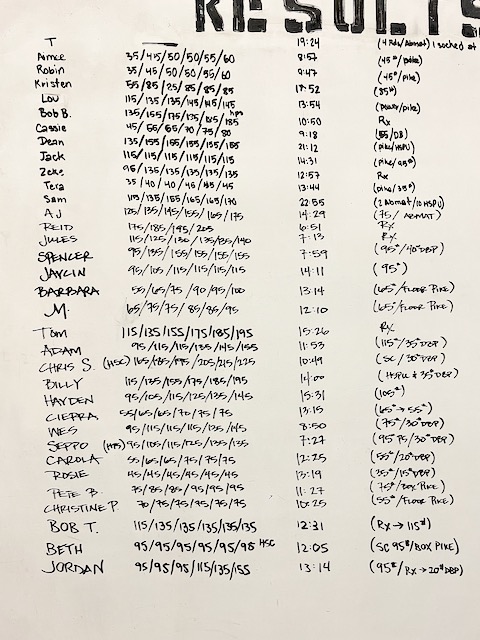 RESULTS
T 19:24 (4 Rds/Abmat) I sucked at
Aimee 35/45/50/50/55/60 8:57 (45#/pike)
Robin 35/45/50/50/55/60 9:47 (45#/pike)
Kristen 55/85/25/85/85/85 17:52 (35#)
Lou 115/135/135/145/145/145 13:54
Bob B. 135/155/175/175/185/185 10:50 Rx
Cassie 45/55/65/70/75/80 9:18 (55/DB)
Dean 135/155/155/155/155/155 21:12 (pike/HSPU)
Jack 115/115/115/115/115/115 14:31 (pike/95#)
Zeke 95/135/135/135/135/135 12:57 Rx
Tera 35/40/40/45/45/45 13:44 (pike/35#)
Sam 115/135/155/165/165/170 22:55 (2 Abmat/10 HSPU)
AJ 125/135/145/155/165/175 14:29 (75/ABMAT)
REID 175/185/195/205 6:51 Rx
JULES 115/125/130/135/135/140 7:13 Rx
SPENCER 95/135/155/155/155/155 7:59 (95#/40#DBP)
JAYCIN 95/105/115/115/115/115 14:11 (95#)
BARBARA 55/65/75/90/95/100 13:14 (65#/FLOOR PIKE)
M. 65/75/75/85/85/95 12:10 (65#/FLOOR PIKE)
TOM 115/135/155/175/185/195 15:26 Rx
ADAM 95/115/115/135/145/155 11:53 (115#/35#DBP)
CHRIS S. (HSC) 165/185/195/205/215/225 10:49 (SC/30#DBP)
BILLY 115/135/155/175/185/195 11:00 (HSPU & 35#DBP)
HAYDEN 95/105/115/125/135/145 15:31 (105#)
CIEPRA 55/65/65/70/75/75 13:15 (65#→55#)
WES 95/115/115/115/135/145 8:50 (75#/30#DBP)
SEPPO (HPS) 95/105/115/125/135/135 7:27 (95 PS/30#DBP)
CAROLA 55/65/65/75/75/75 12:25 (55#/20#DBP)
ROSIE 45/45/45/45/45/45 13:19 (35#/15#DBP)
PETE B. 75/85/85/95/95/95 11:27 (75#/BOX PIKE)
CHRISTINE P. 70/75/75/75/75/75 10:25 (55#/FLOOR PIKE)
BOB T. 115/135/135/135/135/135 12:31 (Rx→115#)
BETH 95/95/95/95/95/95 HSC 12:05 (SC 95#/BOX PIKE)
JORDAN 95/95/95/115/135/155 13:14 (95#/Rx→20#DBP)